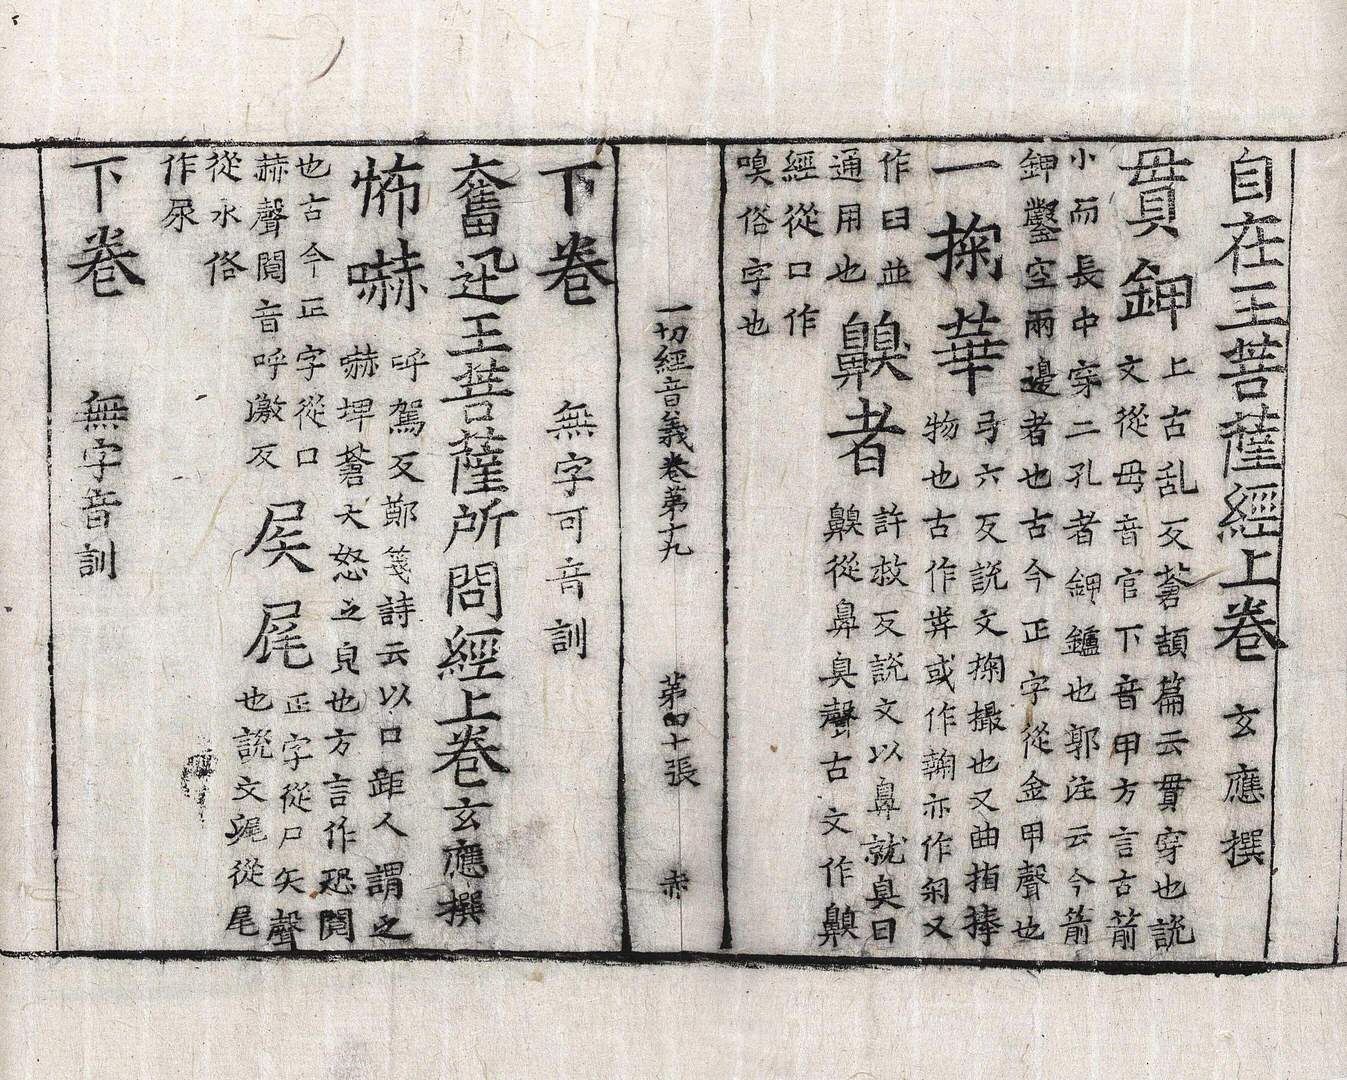 自在王菩薩經上卷 玄應撰
貫鉀 上古乱反蒼頡篇云貫穿也説
文從毋音官下音甲方言古箭
小而長中穿二孔者鉀鑪也郭注云今箭
鉀鑿空兩邊者也古今正字從金甲聲也
一掬華 弓六反説文掬撮也又曲指捧
物也古作𠦬或作䩭亦作匊又
作臼並
通用也 齅者 許救反説文以鼻就臭曰
齅從鼻臭聲古文作齅
經從口作
嗅俗字也
一切經音義卷第十九 第四十張 赤
下卷 無字可音訓
奮迅王菩薩所問經上卷 玄應撰
怖嚇 呼駕反鄭箋詩云以口距人謂之
嚇埤蒼大怒之皃也方言作恐閱
也古今正字從口
赫聲閱音呼激反 屎尾 正字從尸矢聲
也説文𡲵從尾
從水俗
作尿
下卷 無字音訓